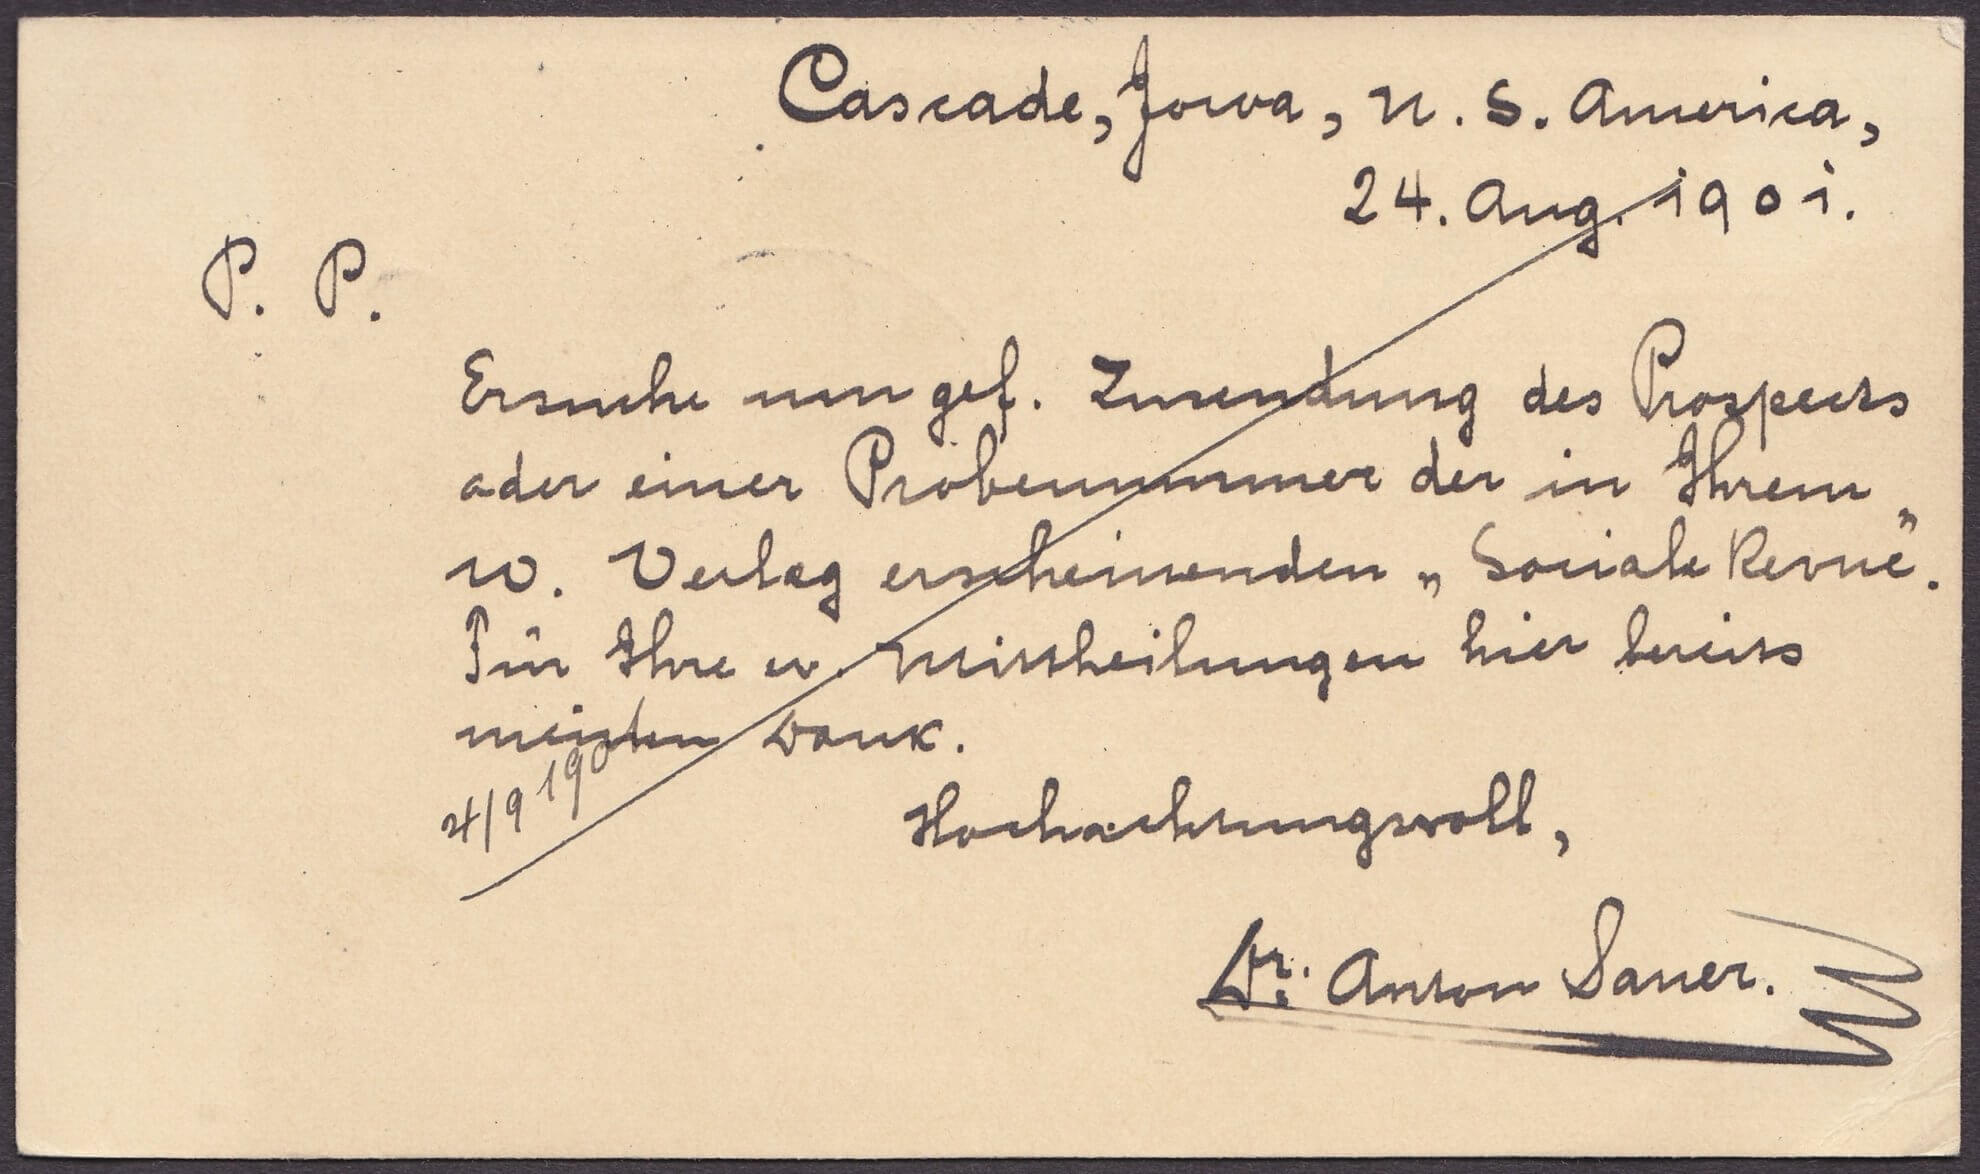 Cascade, Iowa, U. S. America,
24. Aug. 1901.
P. P.
Ersuche um gef. Zusendung des Prospects
oder einer Probenummer der in Ihrem
w. Verlag erscheinenden „Sociale Revue".
Für Ihre w. Mittheilungen hier bereits
meisten Dank.
4/9 190
Hochachtungsvoll,
Dr. Anton Sauer.